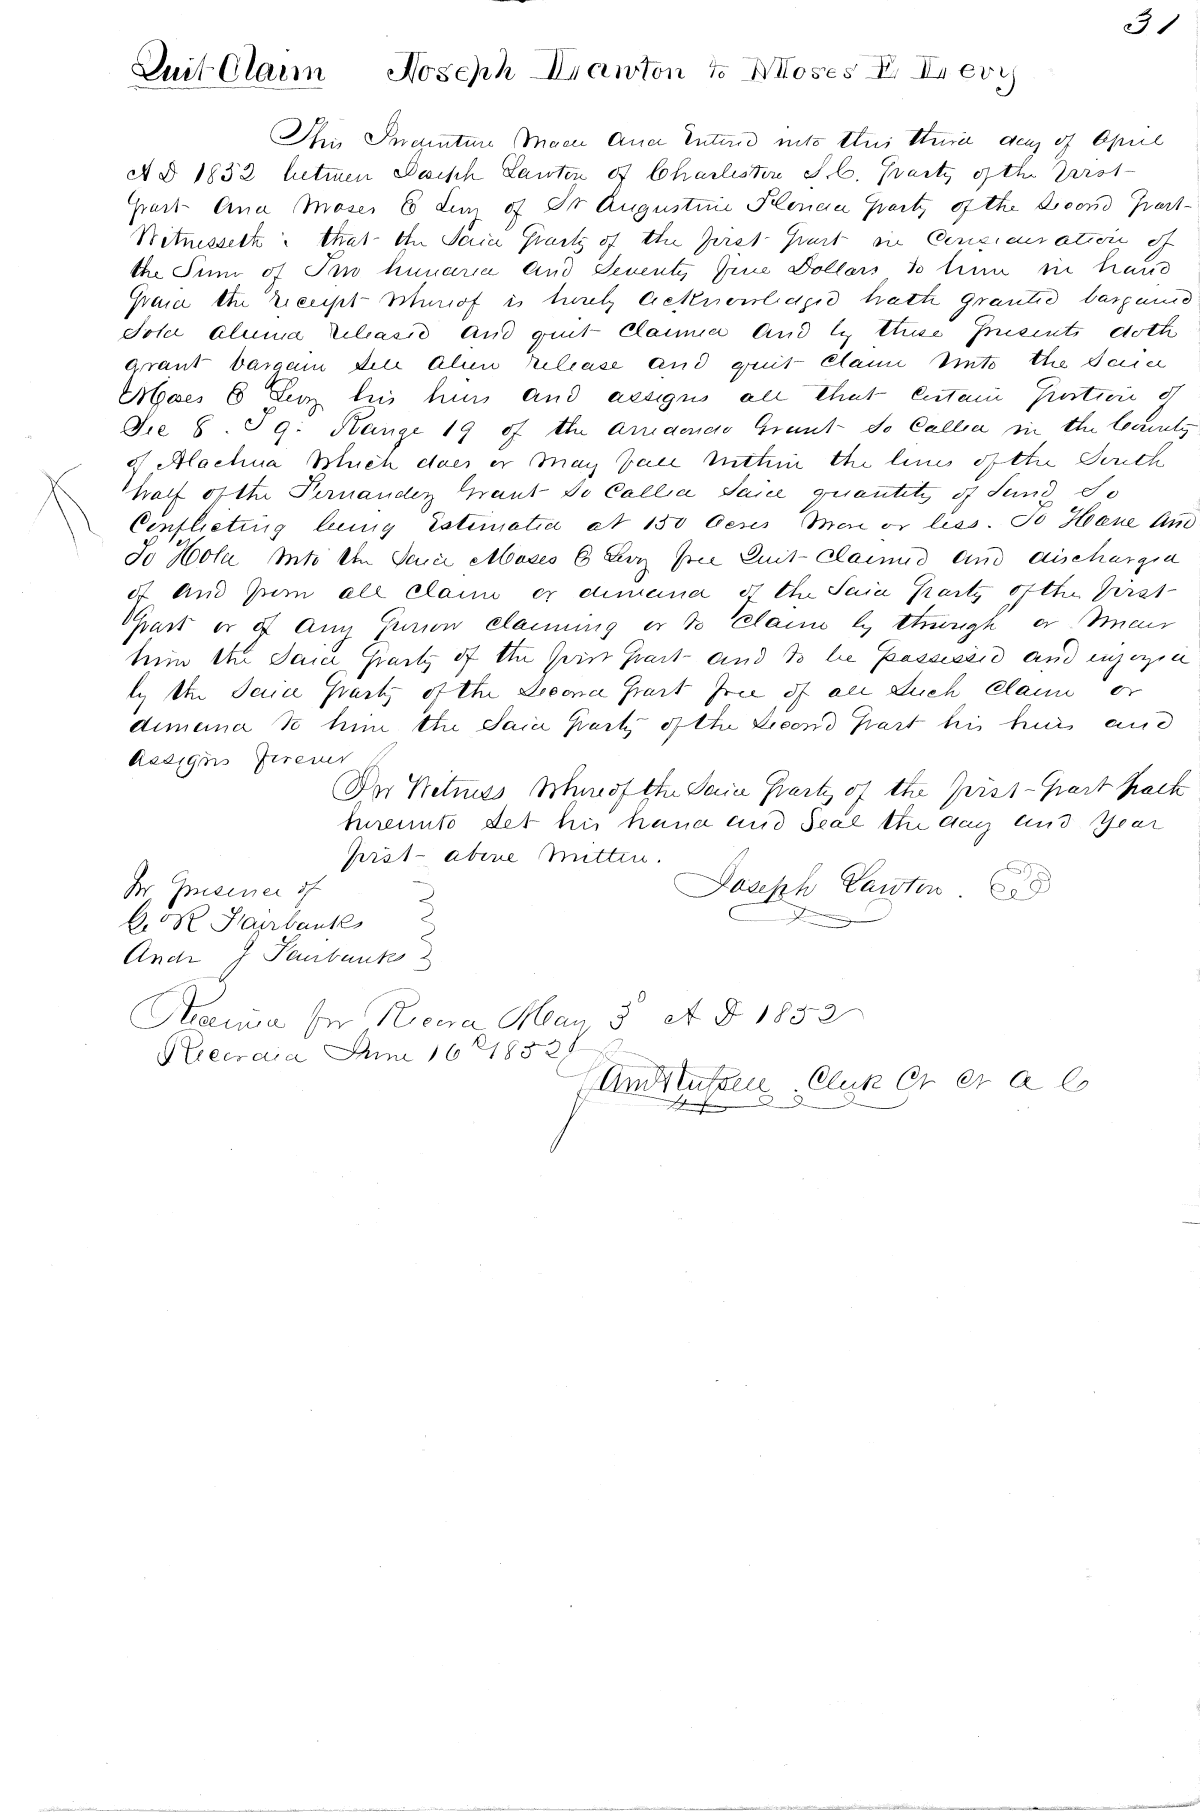 31
Quit Claim Joseph Lawton to Moses E Levy
This Indenture Made And Entered into this third day of April
A D 1852 between Joseph Lawton of Charleston S.C. Party of the First
Part And Moses E Levy of St Augustine Florida Party of the Second Part
Witnesseth: that the Said Party of the first Part in Consideration of
the Sum of Two hundred And Seventy five Dollars to him in hand
Paid the receipt whereof is hereby acknowledged hath granted bargained
Sold aliened released and quit claimed and by these Presents doth
grant bargain Sell alien release and quit claim Unto the Said
Moses E Levy his heirs and assigns all that certain Portion of
Sec 8. T 9. Range 19 of the arredondo Grant So Called in the County
of Alachua which does or may fall within the lines of the South
half of the Fernandez Grant So Called Said quantity of Land So
Conflicting being Estimated at 150 acres More or less. To Have And
To Hold Unto the Said Moses E Levy free Quit Claimed and discharged
of and from all claim or demand of the Said Party of the first
Part or of any Person claiming or to claim by through or Under
him the Said Party of the first Part and to be Possessed and enjoyed
by the Said Party of the Second Part free of all Such Claim or
demand to him the Said Party of the Second Part his heirs and
assigns forever
In Witness Whereof the Said Party of the first Part hath
hereunto Set his hand and Seal the day and Year
first above Written.
In Presence of
G. R Fairbanks
Joseph Lawton.
Andr J Fairbanks
Received for Record May 3d A D 1852
Recorded June 16th 1852
Clerk Ct Ct A C